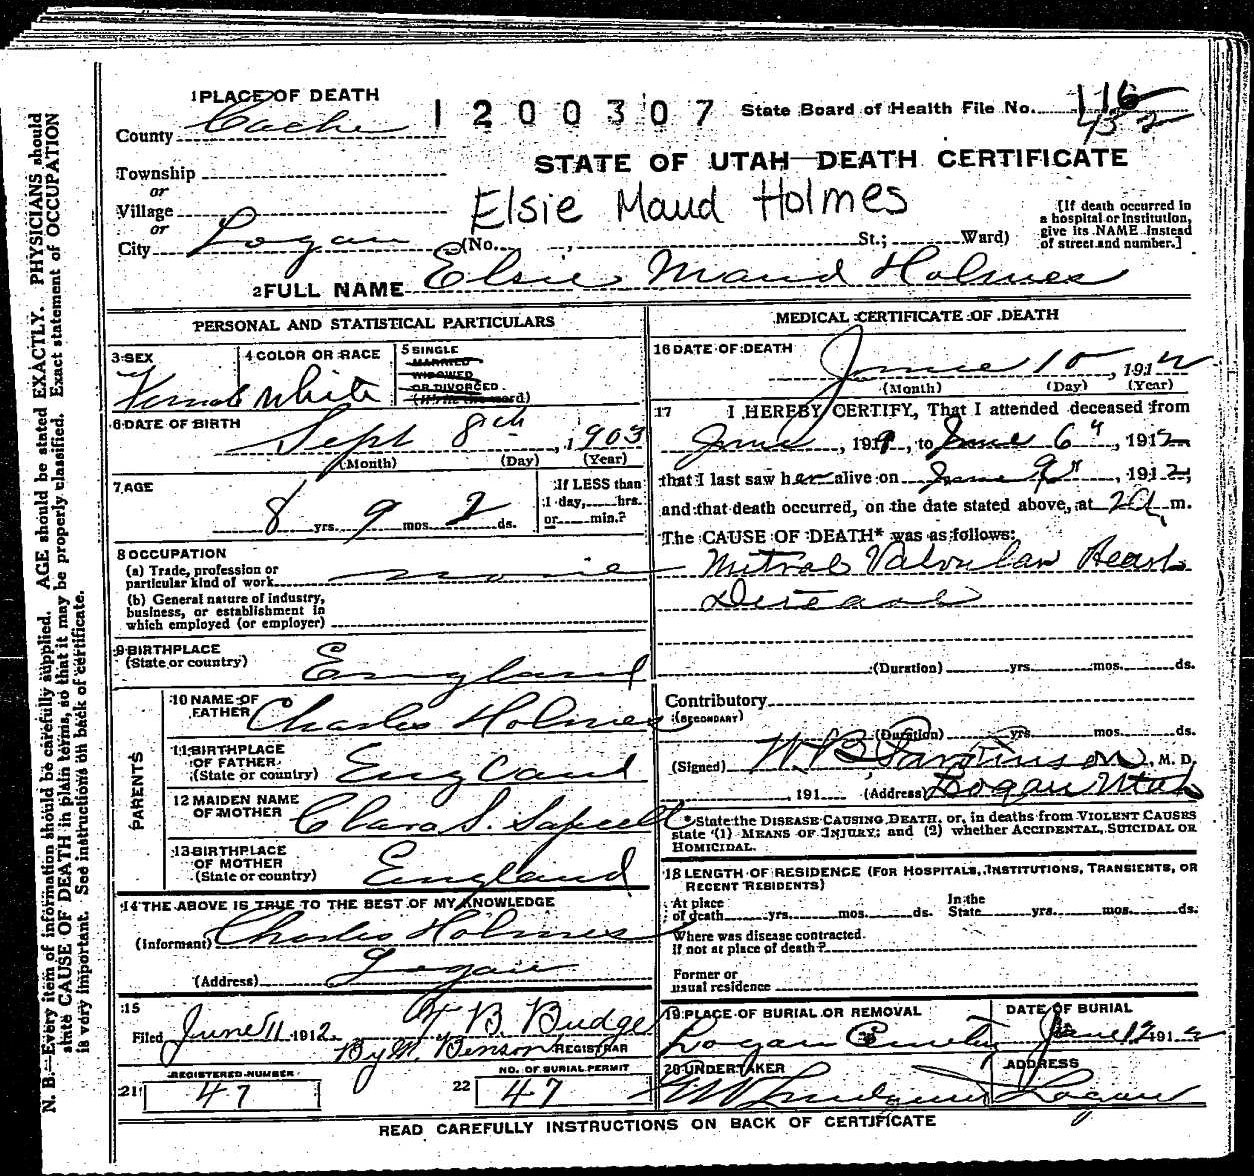 1 PLACE OF DEATH
County Cache
1200307
State Board of Health File No. 116
432
STATE OF UTAH—DEATH CERTIFICATE
Township
or
Village
or
City Logan (No. , St.; Ward)
Elsie Maud Holmes
[If death occurred in
a hospital or institution,
give its NAME instead
of street and number.]
2 FULL NAME Elsie Maud Holmes
PERSONAL AND STATISTICAL PARTICULARS
3 SEX
Female
4 COLOR OR RACE
White
5 SINGLE
MARRIED
WIDOWED
OR DIVORCED
(Write the word)
6 DATE OF BIRTH
Sept 8th, 1903
(Month) (Day) (Year)
7 AGE
8 yrs. 9 mos. 2 ds.
If LESS than
1 day, hrs.
or min.?
8 OCCUPATION
(a) Trade, profession or
particular kind of work none
(b) General nature of industry,
business, or establishment in
which employed (or employer)
9 BIRTHPLACE
(State or country) England
PARENTS
10 NAME OF
FATHER Charles Holmes
11 BIRTHPLACE
OF FATHER
(State or country) England
12 MAIDEN NAME
OF MOTHER Clara S.
13 BIRTHPLACE
OF MOTHER
(State or country) England
14 THE ABOVE IS TRUE TO THE BEST OF MY KNOWLEDGE
(Informant) Charles Holmes
(Address) Logan
15
Filed June 11 1912 B. Budge
By Benson REGISTRAR
21 REGISTERED NUMBER
47
22 NO. OF BURIAL PERMIT
47
MEDICAL CERTIFICATE OF DEATH
16 DATE OF DEATH
June 10, 1912
(Month) (Day) (Year)
17 I HEREBY CERTIFY, That I attended deceased from
June, 191 , to June 6", 1912
that I last saw her alive on June 9", 1912,
and that death occurred, on the date stated above, at 2 a. m.
The CAUSE OF DEATH* was as follows:
Mitral Valvular Heart
Disease
(Duration) yrs. mos. ds.
Contributory
(SECONDARY)
(Duration) yrs. mos. ds.
(Signed) W. B. Parkinson, M. D.
, 191 (Address) Logan Utah
*State the DISEASE CAUSING DEATH, or, in deaths from VIOLENT CAUSES
state (1) MEANS OF INJURY; and (2) whether ACCIDENTAL, SUICIDAL OR
HOMICIDAL.
18 LENGTH OF RESIDENCE (FOR HOSPITALS, INSTITUTIONS, TRANSIENTS, OR
RECENT RESIDENTS)
At place
of death yrs. mos. ds.
In the
State yrs. mos. ds.
Where was disease contracted.
If not at place of death?
Former or
usual residence
19 PLACE OF BURIAL OR REMOVAL
Logan Cemetery
DATE OF BURIAL
June 12 1912
20 UNDERTAKER
ADDRESS
Logan
READ CAREFULLY INSTRUCTIONS ON BACK OF CERTIFICATE
N. B.—Every item of information should be carefully supplied. AGE should be stated EXACTLY. PHYSICIANS should
state CAUSE OF DEATH in plain terms, so that it may be properly classified. Exact statement of OCCUPATION
is very important. See instructions on back of certificate.